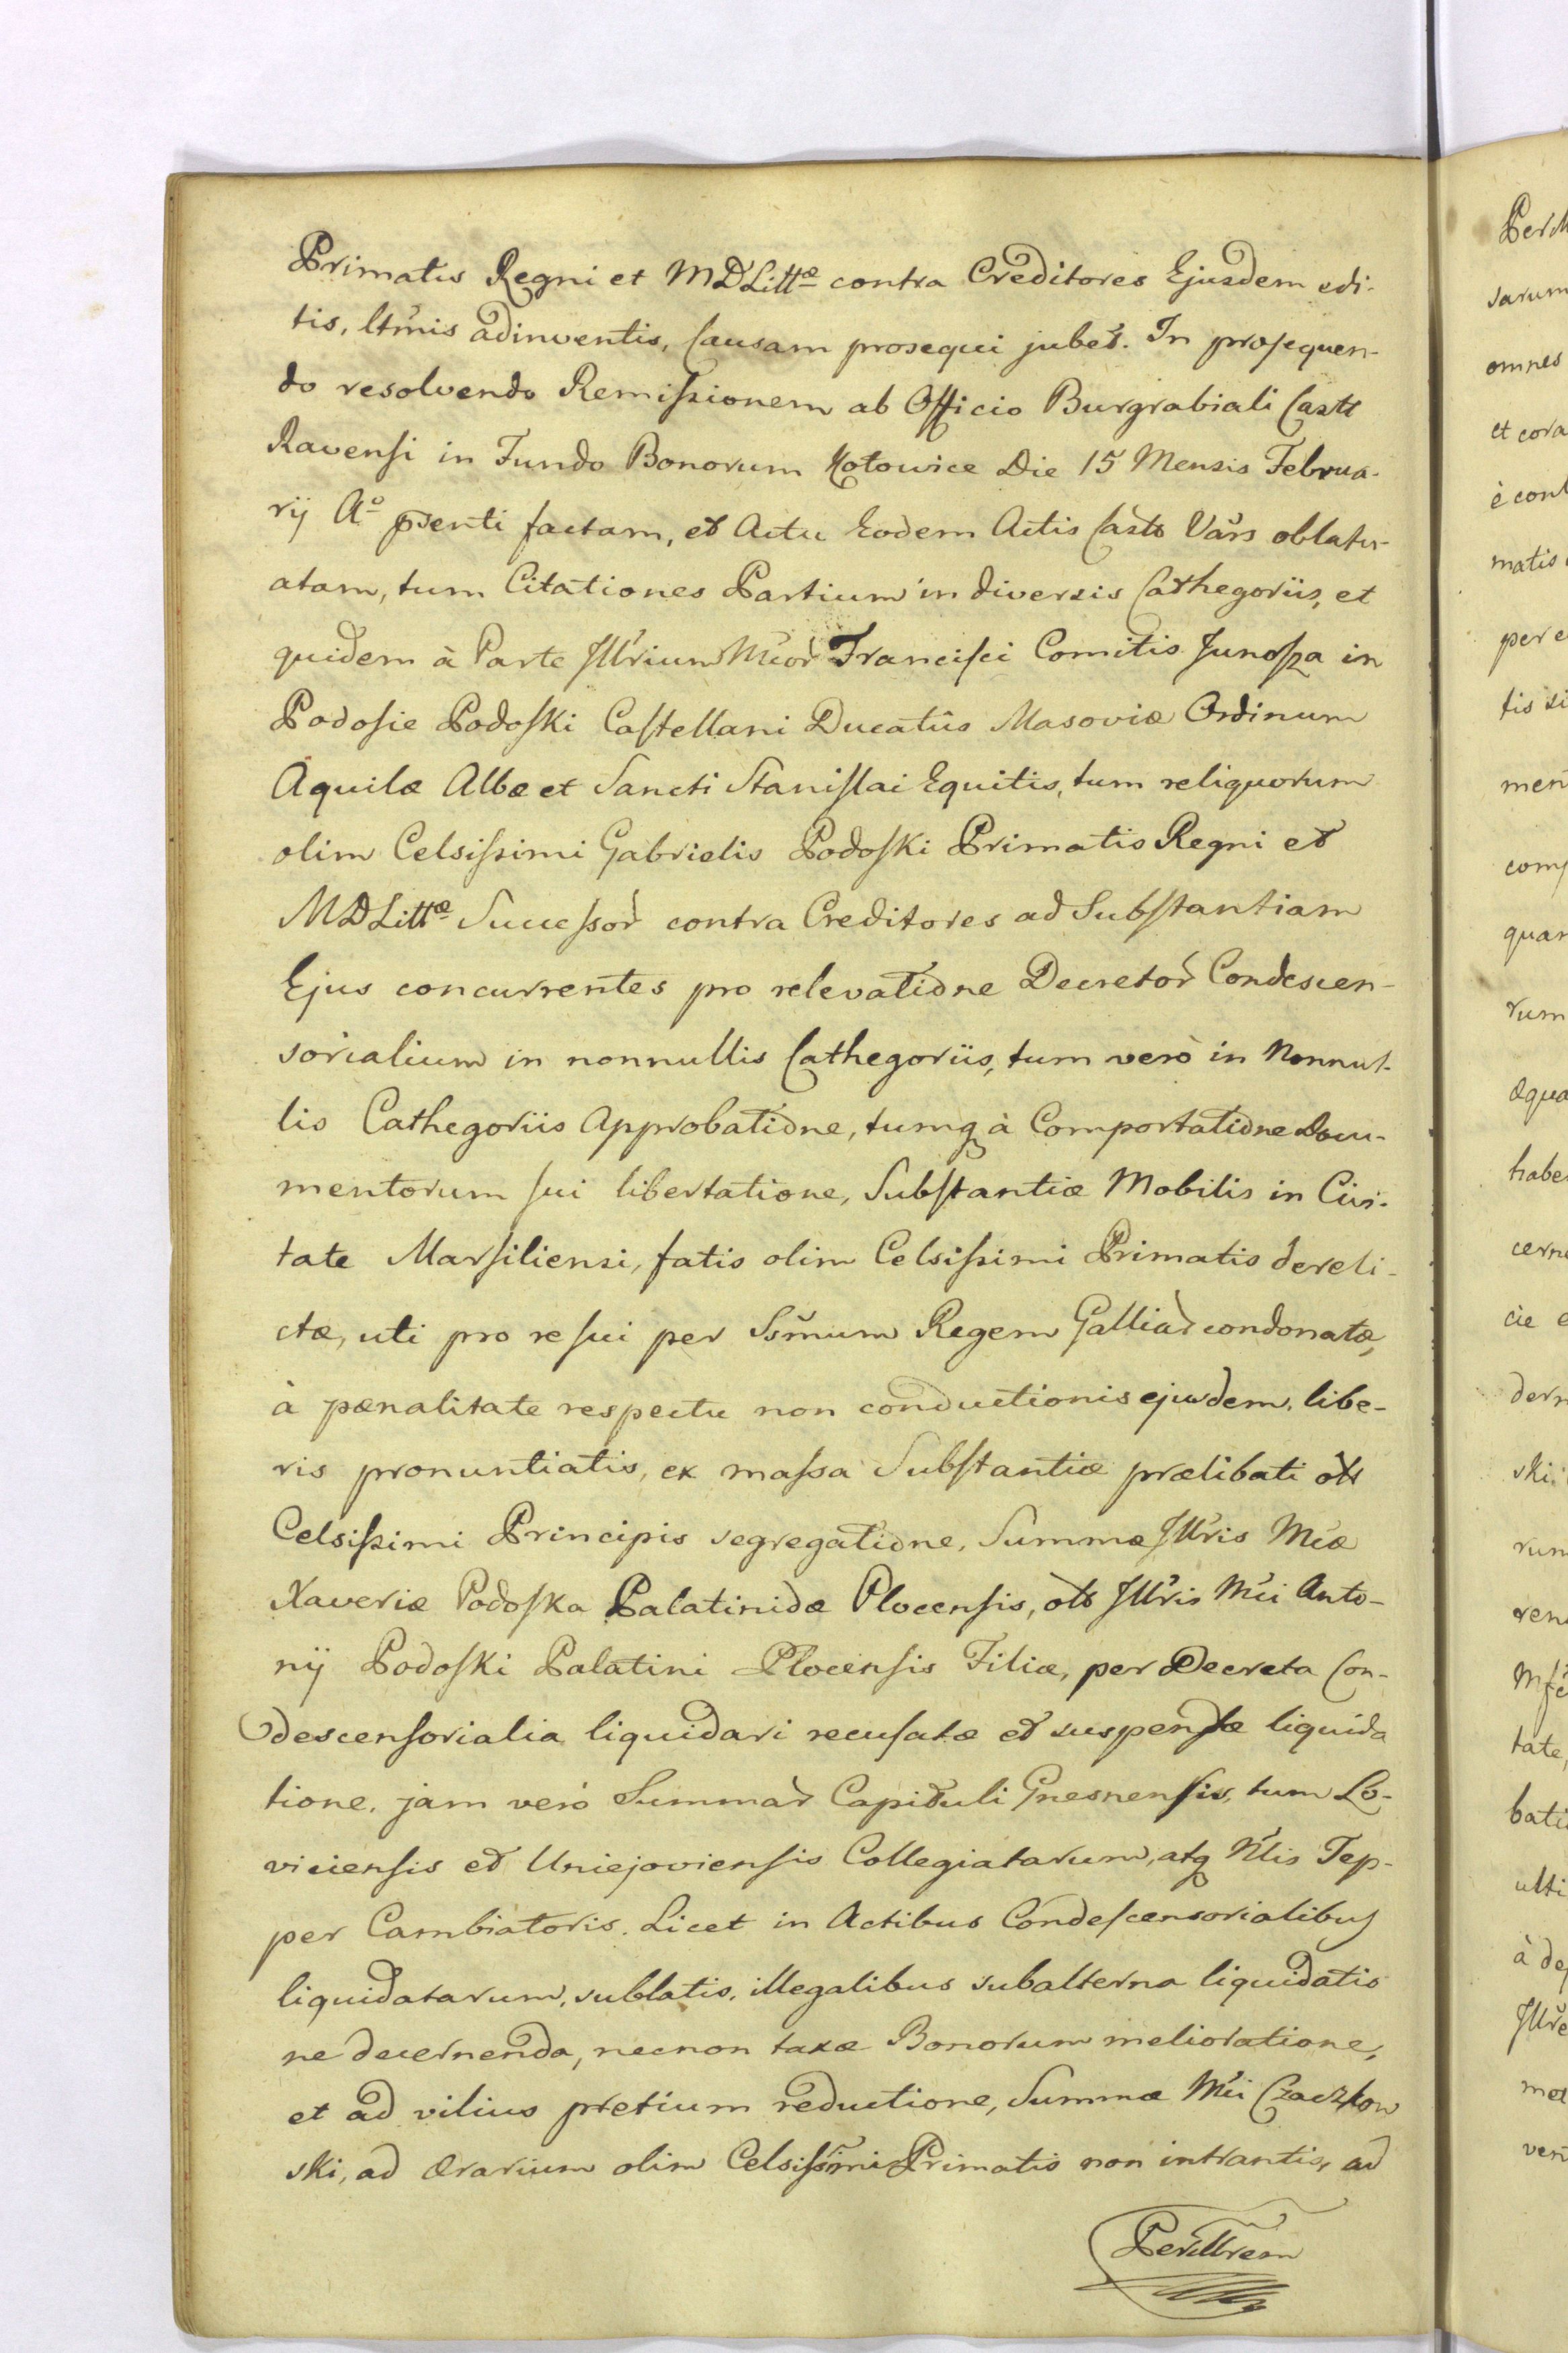 Primatis Regni et MDLittæ contra Creditores Ejusdem edi-
tis, ltmis adinventis, Causam prosequi jubet. In prosequen-
do resolvendo Remissionem ab Officio Burgrabiali Castr
Ravensi in Fundo Bonorum Kotowice Die 15 Mensis Februa-
rij Aº psenti factam, et Actu Eodem Actis Castr Vars oblatur-
atam, tum Citationes Partium in diversis Cathegoriis, et
quidem à Parte Jllrium Mcor Francisci Comitis Junosza in
Podosie Podoski Castellani Ducatûs Masoviæ Ordinum
Aquilæ Albæ et Sancti Stanislai Equitis, tum reliquorum
olim Celsissimi Gabrielis Podoski Primatis Regni et
MDLittæ Successor contra Creditores ad Substantiam
Ejus concurrentes pro relevatione Decretor Condescen-
sorialium in nonnullis Cathegoriis, tum verò in Nonnul-
lis Cathegoriis Approbatione, tumq à Comportatione Docu-
mentorum sui libertatione, Substantiæ Mobilis in Civi-
tate Marsiliensi, fatis olim Celsissimi Primatis dereli-
ctæ, uti pro re sui per Ssmum Regem Galliar condonatæ,
à pænalitate respectu non conductionis ejusdem, libe-
ris pronuntiatis, ex massa Substantiæ prælibati olr
Celsissimi Principis segregatione, Summæ Jllris Mcæ
Xaveriæ Podoska Palatinidæ Plocensis, olr Jllris Mci Anto-
nij Podoski Palatini Plocensis Filiæ, per Decreta Con-
descensorialia liquidari recusatæ et suspensæ liquida
tione, jam verò Summar Capituli Gnesnensis, tum Lo-
viciensis et Uniejoviensis Collegiatarum, atq Nlis Tep-
per Cambiatoris. Licet in Actibus Condescensorialibus
liquidatarum, sublatis, illegalibus subalterna liquidatio
ne decernenda, necnon taxæ Bonorum melioratione,
et ad vilius pretium reductione, Summæ Mci Czaczkow
ski, ad Ærarium olim Celsissimi Primatis non intrantis, ad
Perillrem